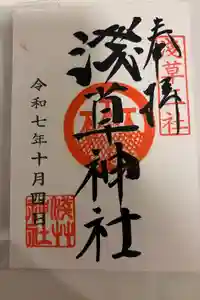 奉拝
浅草神社
浅草神社
令和七年十月四日
浅草神社